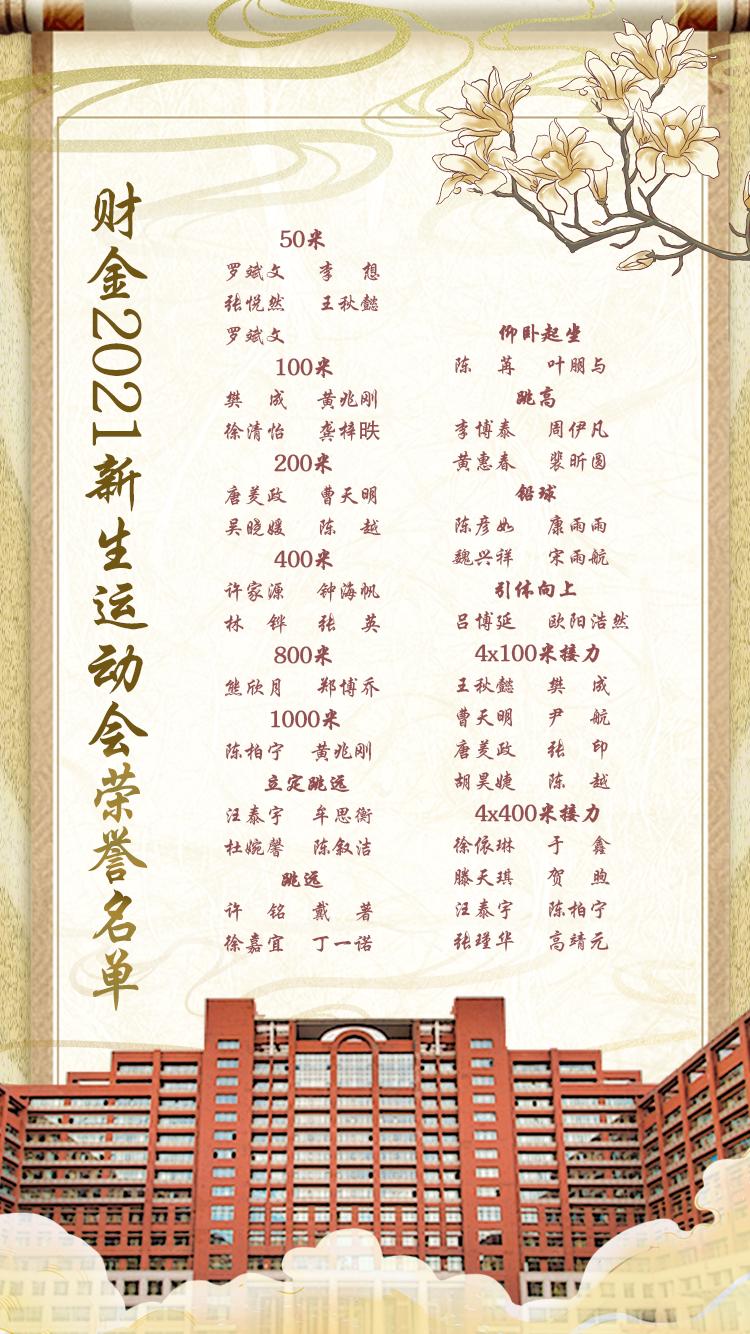 财金2021新生运动会荣誉名单
50米
罗斌文 李想
张悦然 王秋懿
罗斌文
100米
樊成 黄兆刚
徐清怡 龚梓昳
200米
唐羑政 曹天明
吴晓媛 陈越
400米
许家源 钟海帆
林铧 张英
800米
熊欣月 郑博乔
1000米
陈柏宁 黄兆刚
立定跳远
汪泰宇 牟思衡
杜婉馨 陈叙洁
跳远
许铭 戴著
徐嘉宜 丁一诺
仰卧起坐
陈苒 叶朋与
跳高
李博泰 周伊凡
黄惠春 裴昕圆
铅球
陈彦如 康雨雨
魏兴祥 宋雨航
引体向上
吕博延 欧阳浩然
4x100米接力
王秋懿 樊成
曹天明 尹航
唐羑政 张印
胡昊婕 陈越
4x400米接力
徐依琳 于鑫
滕天琪 贺煦
汪泰宇 陈柏宁
张瑾华 高靖元